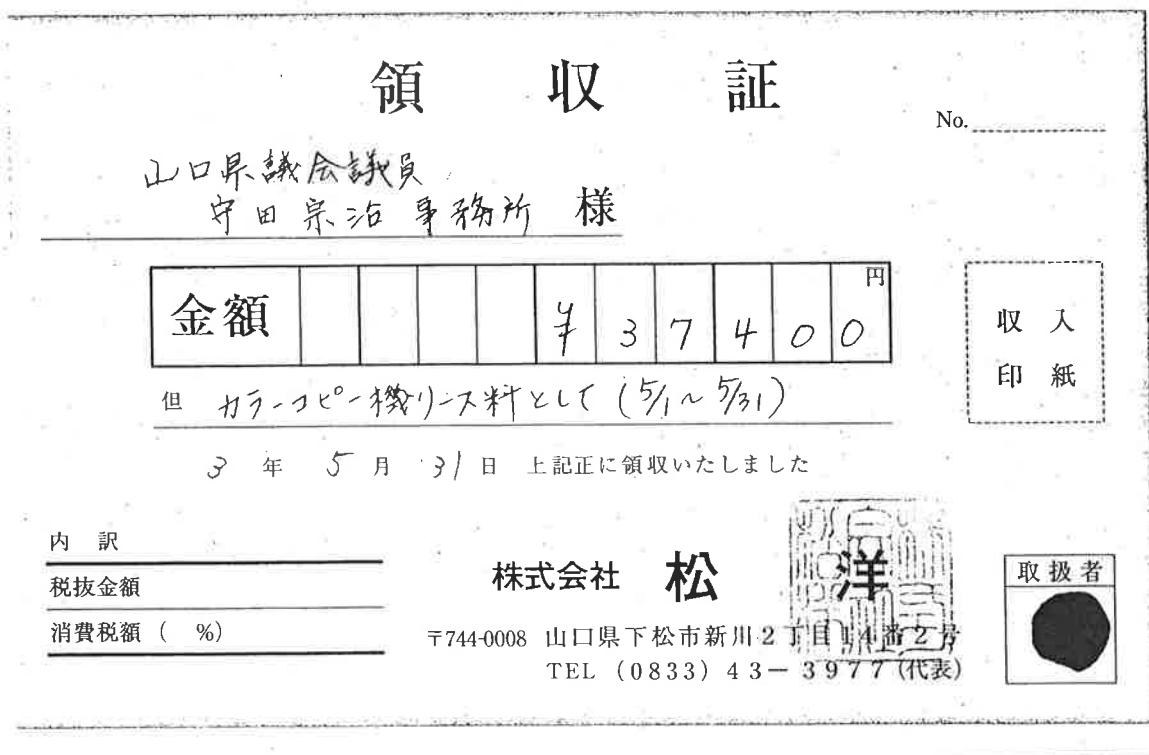 領収証
No.
山口県議会議員
守田宗治事務所 様
金額 ¥37400円
収入
印紙
但 カラーコピー機リース料として(5/1～5/31)
3年5月31日 上記正に領収いたしました
内訳
税抜金額
消費税額( %)
株式会社 松洋
〒744-0008 山口県下松市新川2丁目14番2号
TEL (0833) 43-3977 (代表)
取扱者